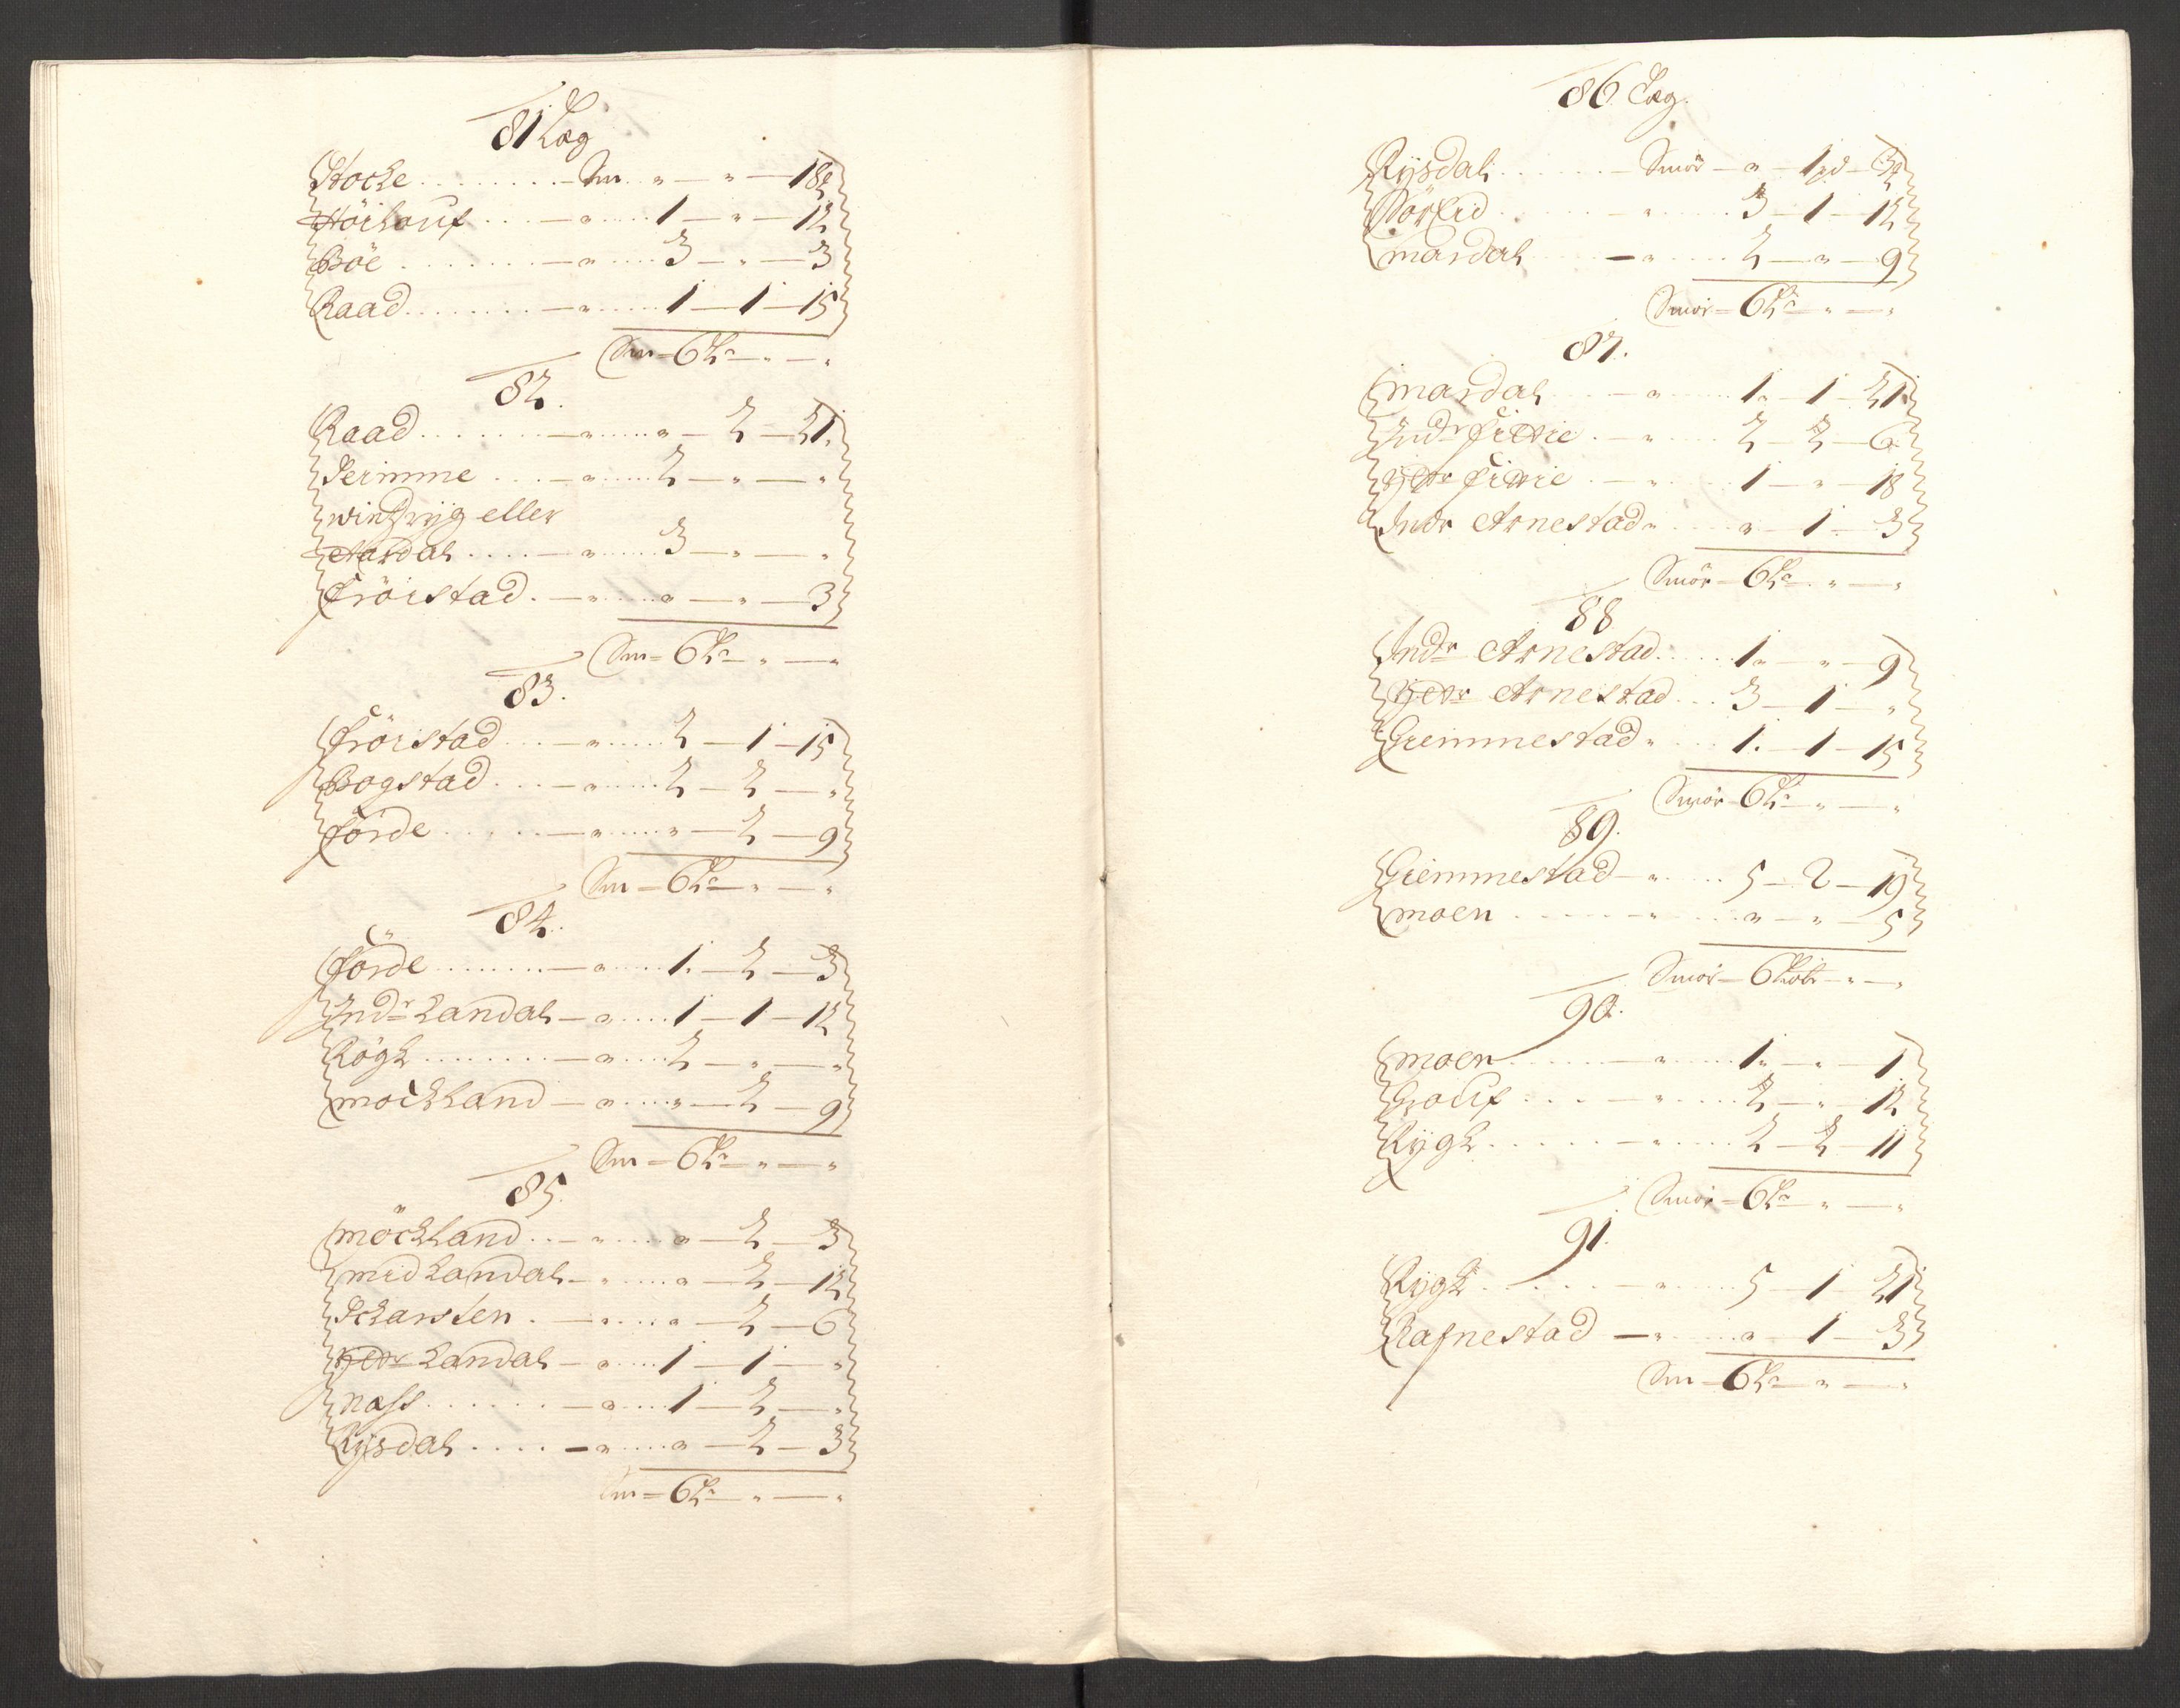 81 Læg
Stocke Sm " " 18
Höilouf " 1 " 12
Böe " 3 " 3
Raad " 1 1 15
Sm 6 La " "
82.
Raad " " 2 21
Reimme " 2 " "
windtviig eller
Aardal " 3 " "
fröistad " " " 3
Sm 6 La " "
83.
fröistad " 2 1 15
Bogstad " 2 2 "
förde " " 2 9
Sm 6 La " "
84.
förde " 1 2 3
Indr Landal " 1 1 12
Rögh " 2 " "
mockland " " 2 9
Sm 6 La " "
85.
möckland " " 2 3
mid Landal " " 2 12
Skarsten " " 2 6
ÿttr Landal " 1 1 "
næss " 1 2 "
Rÿsdal " " 2 3
Sm 6 La " "
86 Læg.
Rÿsdal Smör " 1 pd 3
Sörlid " 3 1 12
mardal " 2 " 9
Smör 6 La " "
87.
mardal " 1 1 21
Indr fittie " 2 2 6
ÿttr fittie " 1 " 18
Indr Arnestad " " 1 3
Smör 6 La " "
88
Indr Arnestad 1 " 9
ÿttr Arnestad 3 1 "
Giemmestad " 1 1 15
Smör 6 La " "
89.
Giemmestad " 5 2 19
moen " " " 5
Smör 6 " "
90.
moen " 1 " 1
Grouf " 2 " 12
Rÿgh " 2 2 11
Smör 6 La " "
91.
Rÿgh " 5 1 21
Rafnestad " " 1 3
Sm 6 La " "